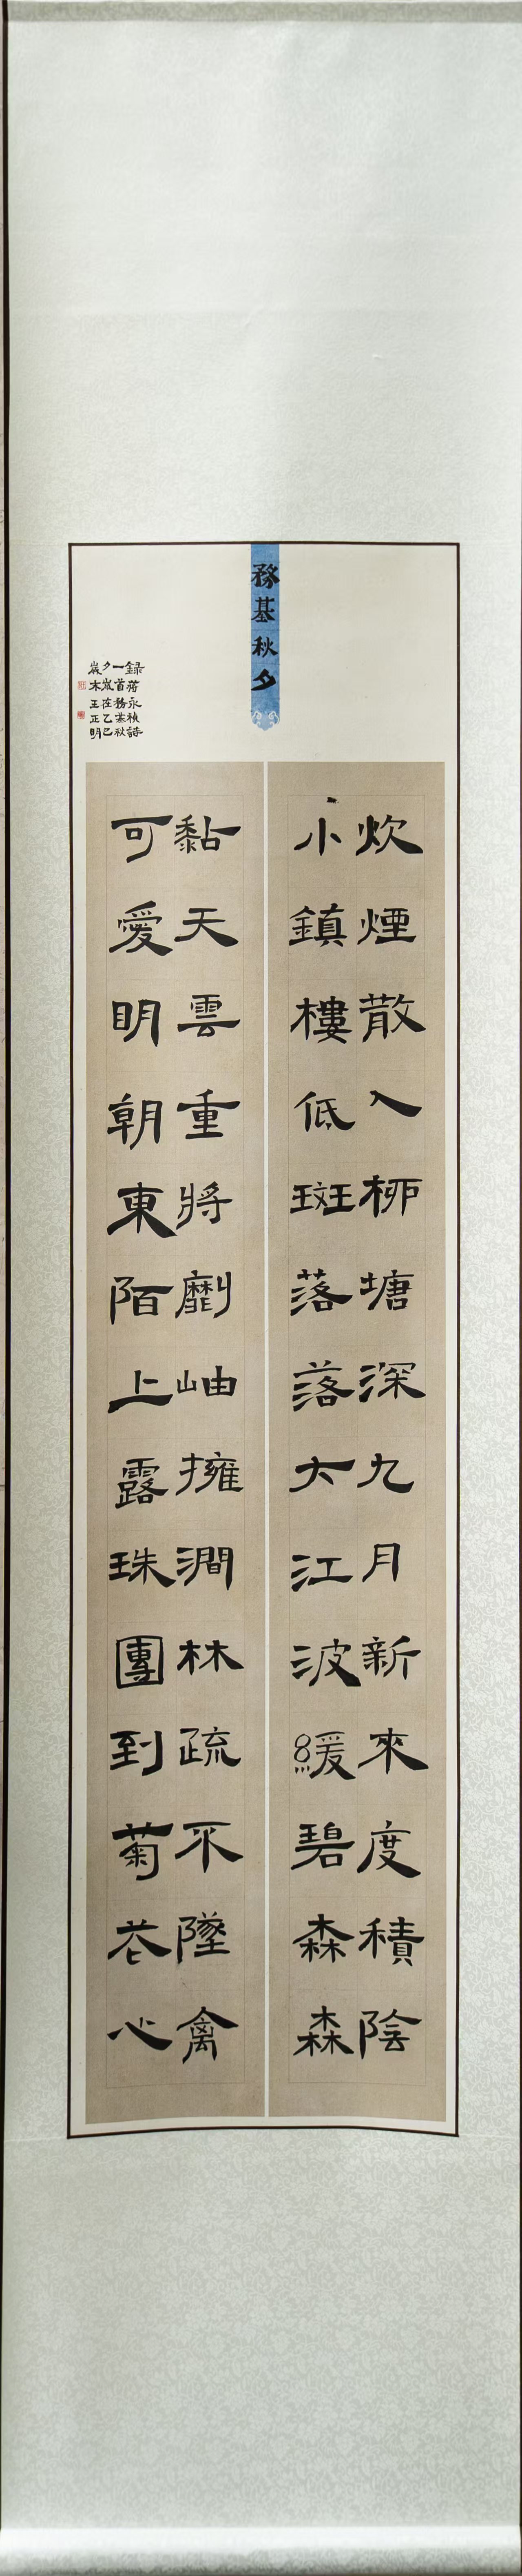 務基秋夕
炊煙散入栁塘深九月新來度積陰
小鎮樓低斑落落大江波緩碧森森
黏天雲重將劘岫擁澗林疏不墜禽
可愛明朝東陌上露珠團到菊花心
録蔣永楨詩
一首務基秋
夕歲在乙巳
歲木王正明